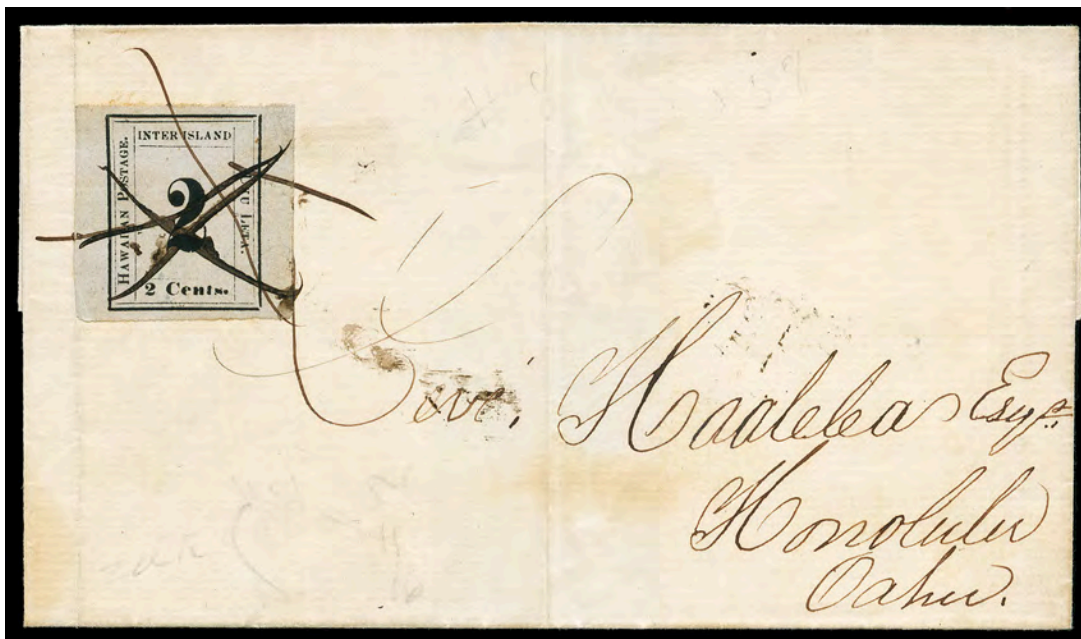 INTER ISLAND
HAWAIIAN POSTAGE.
2
UKU LETA.
2 Cents.
Levi, Haalelea Esqr.
Honolulu
Oahu.